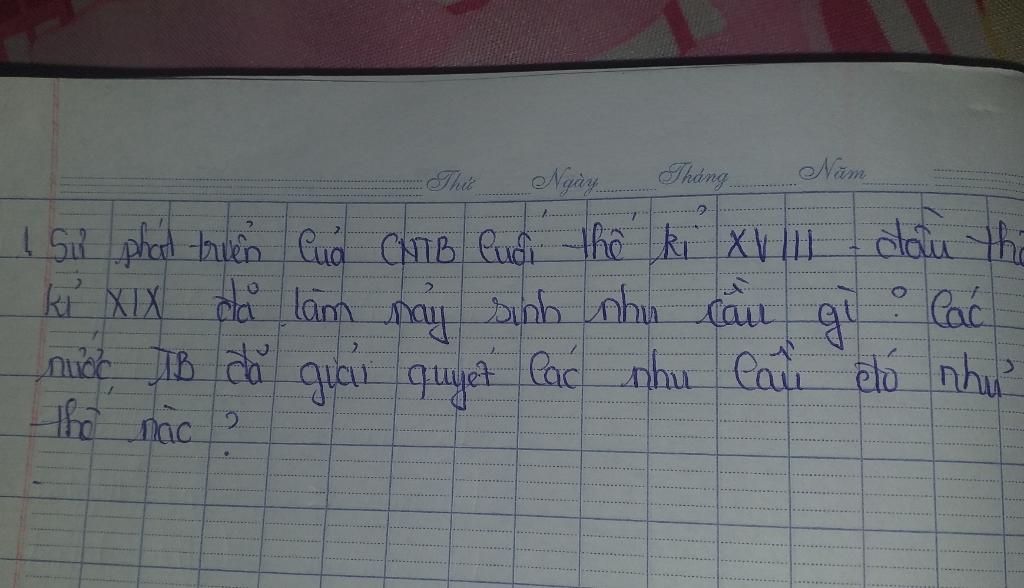 Thứ Ngày Tháng Năm
1. Sự phát triển của CNTB cuối thế kỉ XVIII - đầu thế
kỉ XIX đã làm nảy sinh nhu cầu gì? Các
nước TB đã giải quyết các nhu cầu đó như
thế nào?